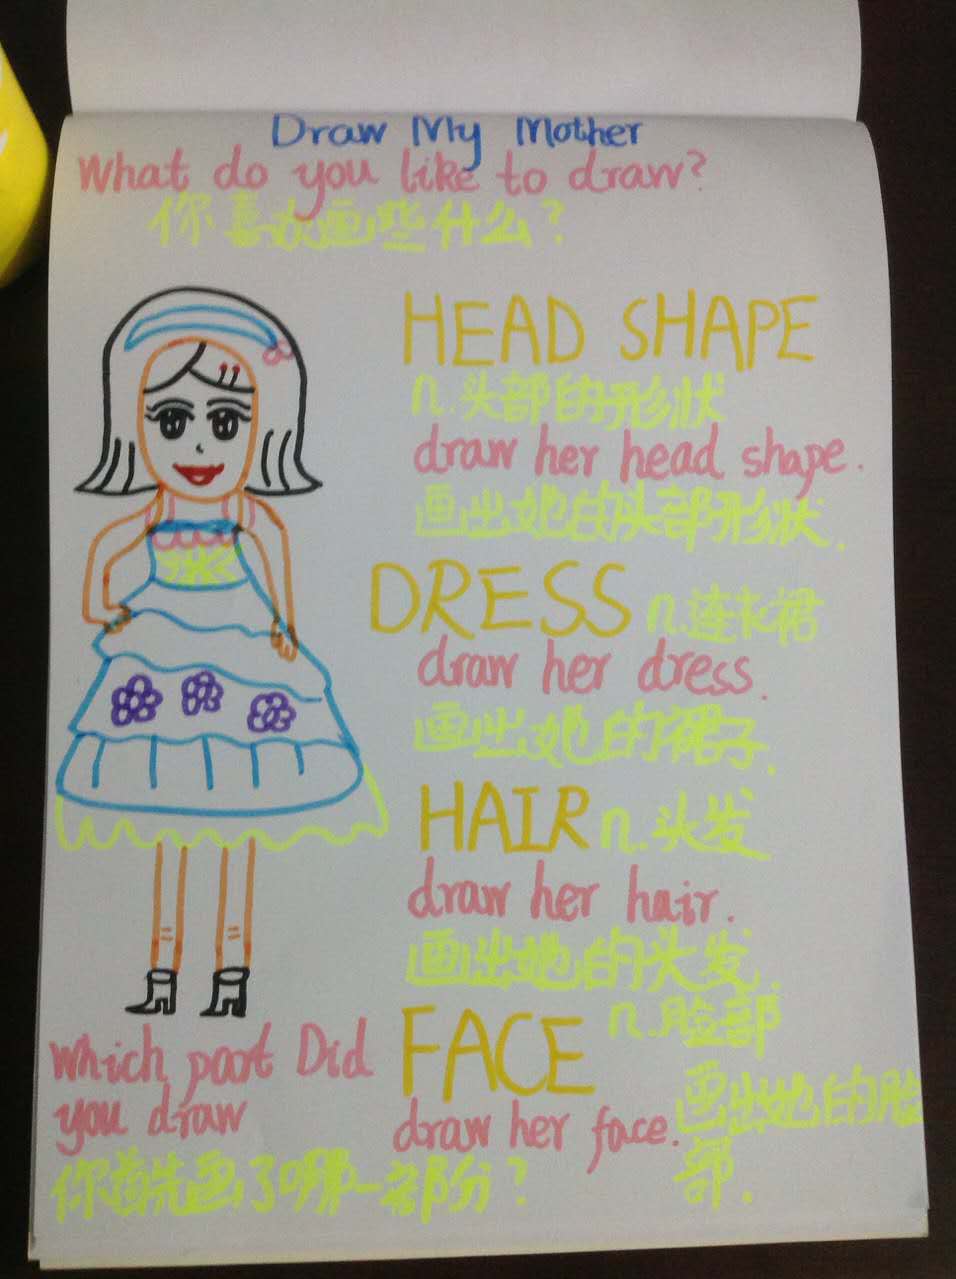 Draw My Mother
What do you like to draw?
你喜欢画些什么?
HEAD SHAPE
n.头部的形状
draw her head shape.
画出她的头部形状.
DRESS n.连衣裙
draw her dress.
画出她的裙子.
HAIR n.头发
draw her hair.
画出她的头发.
FACE n.脸部
draw her face. 画出她的脸
部.
Which part Did
you draw
你首先画了哪一部分?